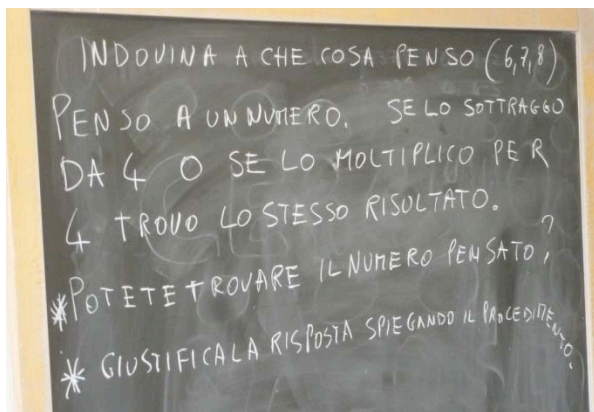 INDOVINA A CHE COSA PENSO (6,7,8)
PENSO A UN NUMERO. SE LO SOTTRAGGO
DA 4 O SE LO MOLTIPLICO PER
4 TROVO LO STESSO RISULTATO.
*POTETE TROVARE IL NUMERO PENSATO?
* GIUSTIFICA LA RISPOSTA SPIEGANDO IL PROCEDIMENTO.